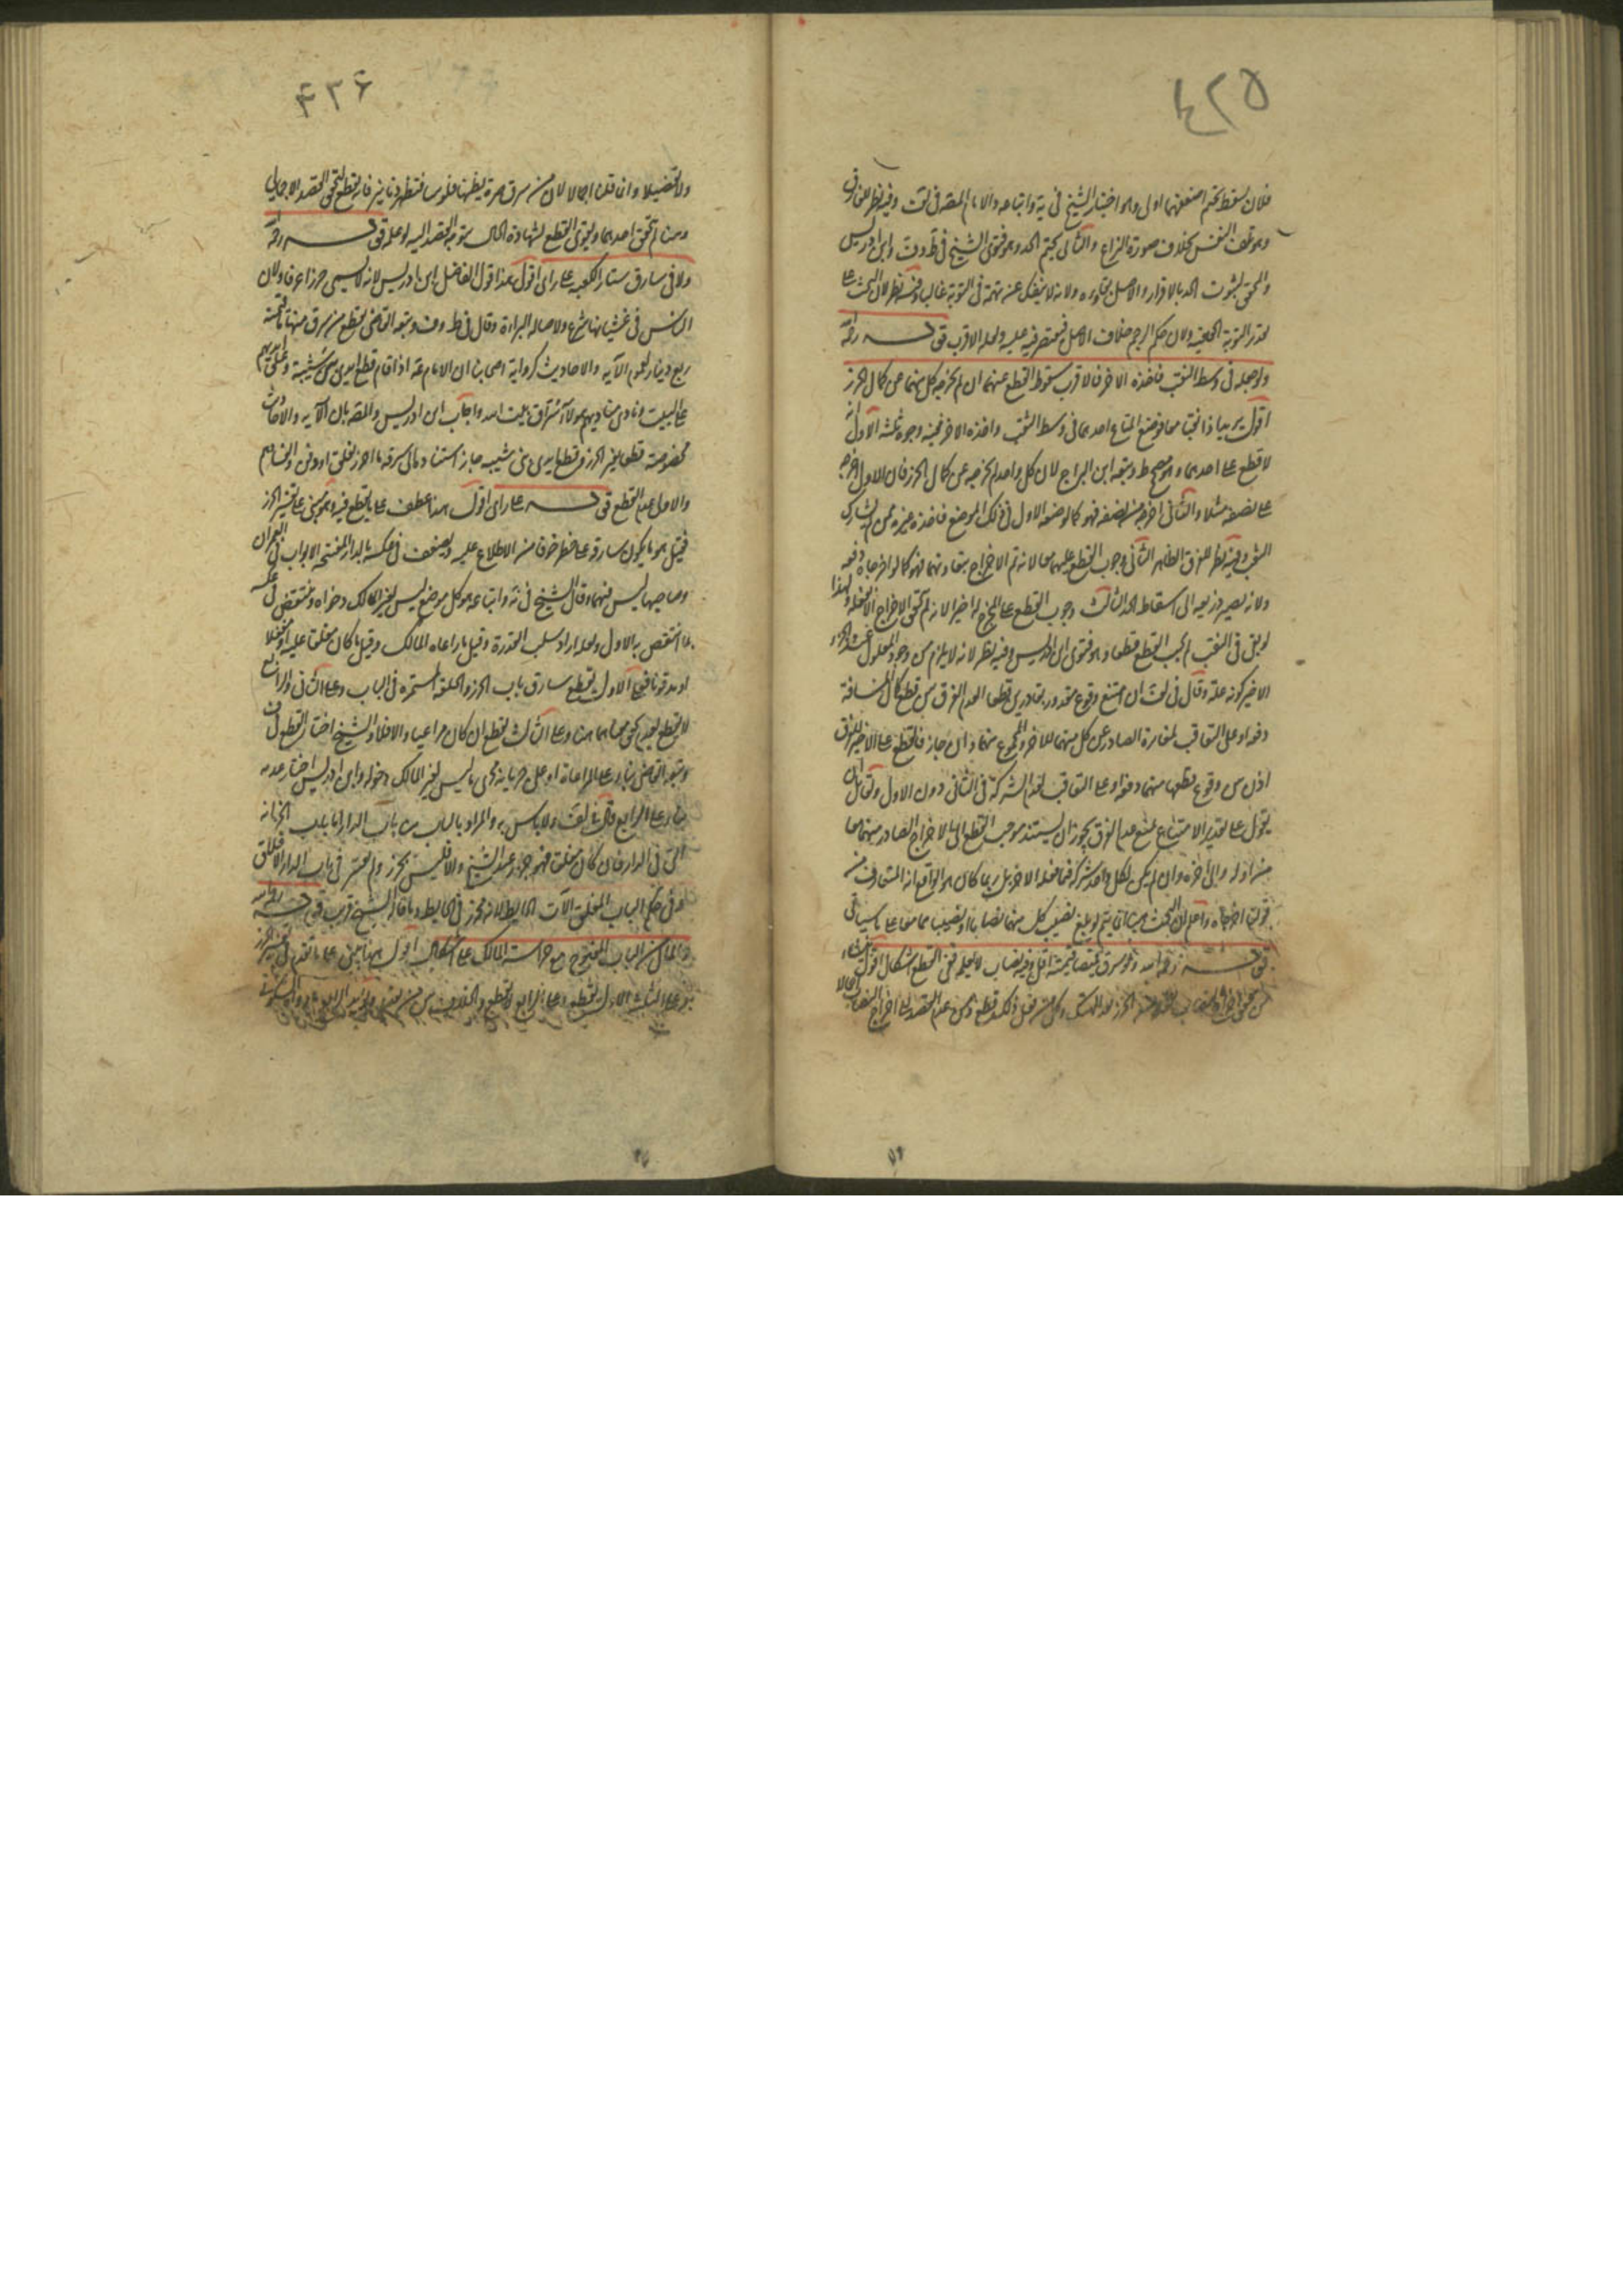 ٤٢٥
فلان يسقط تحتم اضعفهما اولى وهو اختيار الشيخ في ية واتباعه والامام المصنف في لف وفيه نظر للفارق
وهو تلف النفس بخلاف صورة النزاع والثاني تحتم الحد وهو فتوى الشيخ في ط وف وابن ادريس
واحتج بثبوت الحد بالاقرار والاصل بقاؤه ولانه لا ينفك عنه تهمة في التوبة غالبا وفيه نظر لان البحث على
تقدير التوبة الحقيقية ولان حكم الرجم خلاف الاصل فيقتصر فيه عليه ولعله الاقرب قوله رحمه
ولو جعله في وسط النقب فاخذه الاخر فالاقرب سقوط القطع عنهما ان لم يخرجه كل منهما عن كمال الحرز
اقول يريد اذا نقبا معا فوضع المتاع احدهما في وسط النقب واخذه الاخر ففيه وجوه ثلثة الاول انه
لا قطع على احدهما وهو مصحح ط وتبعه ابن البراج لان كل واحد لم يخرجه عن كمال الحرز فان الاول اخرجه
على نصفه مثلا والثاني اخرجه من نصفه فهو كما لو وضعه الاول في ذلك الموضع فاخذه غيره ممن لم يشارك في
النقب وفيه نظر للفرق الظاهر الثاني وجوب القطع عليهما معا لانه تم الاخراج بتعاونهما فهو كما لو اخرجاه دفعه
ولانه يصير ذريعة الى اسقاط الحد الثالث وجوب القطع على المخرج له اخيرا لانه لم يتحقق الاخراج الا بفعله ولهذا
لو بقى في النقب لم يجب القطع قطعا وهو فتوى ابن ادريس وفيه نظر لانه لا يلزم من وجود المعلول عند الجزء
الاخير كونه علة وقال في لف ان امتنع وقوع مقدور بقادرين قطعا لعدم الفرق بين قطع كمال المسافة
دفعه او على التعاقب لمغايرة الصادر عن كل منهما للاخر والمجموع منهما وان جاز فالقطع على الاخير للفرق
اذن بين وقوع قطعها منهما دفعه او على التعاقب لعدم الشركة في الثاني دون الاول ولقائل ان
يقول على تقدير الامتناع نمنع عدم الفرق يجوز ان يستند موجب القطع الى الاخراج الصادر منهما معا
من اوله والى اخره وان لم يكن لكل واحد شركة فيما فعله الاخر بل ربما كان هو الواقع اذ المتعارف من
قولنا اخرجاه واعلم ان البحث هنا انما يتم لو بلغ نصيب كل منهما نصابا او نصيبهما معا على ما سياتي
قوله رحمه الله ولو سرق قميصا قيمته اقل وفيه نصاب لا يعلمه ففي القطع اشكال اقول منشاء
من تحقق اخراج النصاب من الحرز بعد الهتك وكل من فعل ذلك قطع ومن عدم القصد الى اخراج النصاب اجمالا
٤٣۶
ولا تفضيلا وانما قلنا اجمالا لان من سرق صرة يظنها فلوسا فتظهر دنانير فانه يقطع لتحقق القصد الاجمالي
وهنا لم يتحقق احدهما ويقوى القطع لشهادة الحال بتوجه القصد اليه لو علمه قوله رحمه
ولا في سارق ستارة الكعبه على راى اقول هذا قول الفاضل ابن ادريس لانه لا يسمى حرزا عرفا ولان
الناس في غشيانها شرع ولاصالة البراءة وقال في ط وف وتبعه القاضي يقطع من سرق منها ما قيمته
ربع دينار لعموم الآيه والاحاديث كرواية اصحابنا ان الامام عه اذا قام قطع ايدي بني شيبة وعلق ايديهم
على البيت ونادى مناديهم هؤلاء سراق بيت الله واجاب ابن ادريس والمصنف بان الآيه والاحاديث
مخصوصة قطعا بغير الحرز وقطع ايدي بني شيبه جاز استنادها الى سرقه ما احرز بغلق او دفن والخامس
والاولى عدم القطع قوله على راى اقول هذا عطف على ما يقطع فيه وهو مبني على تفسير الحرز
فقيل هو ما يكون سارقه على خطر خوفا من الاطلاع عليه ويضعف في عكسه بالدار المفتحة الابواب في العمران
وصاحبها ليس فيها وقال الشيخ في ية واتباعه هو كل موضع ليس لغير المالك دخوله وينتقض في عكسه
بما انتقض به الاول ولعله اراد سلب القدرة وقيل ما راعاه المالك وقيل ما كان مغلقا عليه او مقفلا
او مدفونا فعلى الاول يقطع سارق باب الحرز والحلقة المسمرة في الباب وعلى الثاني والرابع
لا يقطع لعدم تحقق معناهما هنا وعلى الثالث يقطع ان كان مراعيا والا فلا والشيخ اختار القطع في ف
وتبعه القاضي بناء على المراعاة او على جريانه مجرى ما ليس لغير المالك دخوله وابن ادريس اختار عدمه
بناء على الرابع قال في لف ولا باس به والمراد بالباب هنا باب الدار اما باب الخزانة
التي في الدار فان كان مغلقا فهو حرز عند الشيخ والا فليس بحرز ولم يعتبر في باب الدار الاغلاق
وفي حكم الباب المغلق الآت الحايط لانه محرز في الحايط وما قاله الشيخ قريب قوله رحمه الله
والمال من الباب المفتوح مع حراسة المالك على اشكال اقول هنا مبني على ما تقدم في تفسير الحرز